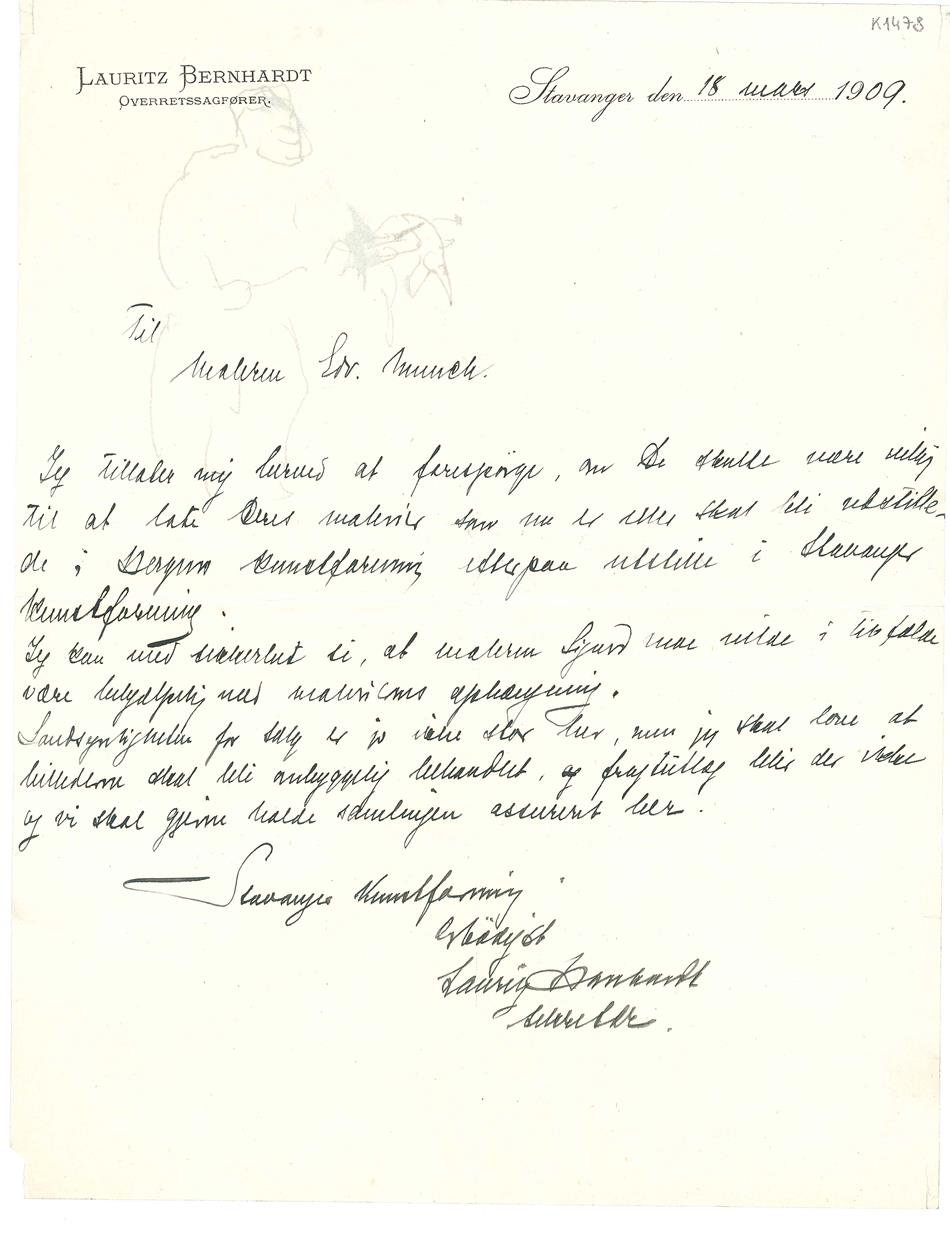 K1478
LAURITZ BERNHARDT
OVERRETSSAGFØRER.
Stavanger den 18 mars 1909.
Til
Maleren Edv. Munch.
Jeg tillater mig herved at forespørge, om De skulde være villig
til at late Deres malerier som nu er eller skal bli utstille-
de i Bergens Kunstforening efterpaa utstille i Stavanger
Kunstforening.
Jeg kan med sikkerhet si, at maleren Sigurd moe vilde i tilfælde
være behjælpelig med maleriernes ophængning.
Sandsynligheten for salg er jo ikke stor her, men jeg skal love at
billederne skal bli omhyggelig behandlet, og fragttillæg blir der ikke
og vi skal gjerne holde samlingen assurert her.
Stavanger Kunstforening
Ærbødigst
Lauritz Bernhardt
sekretær.